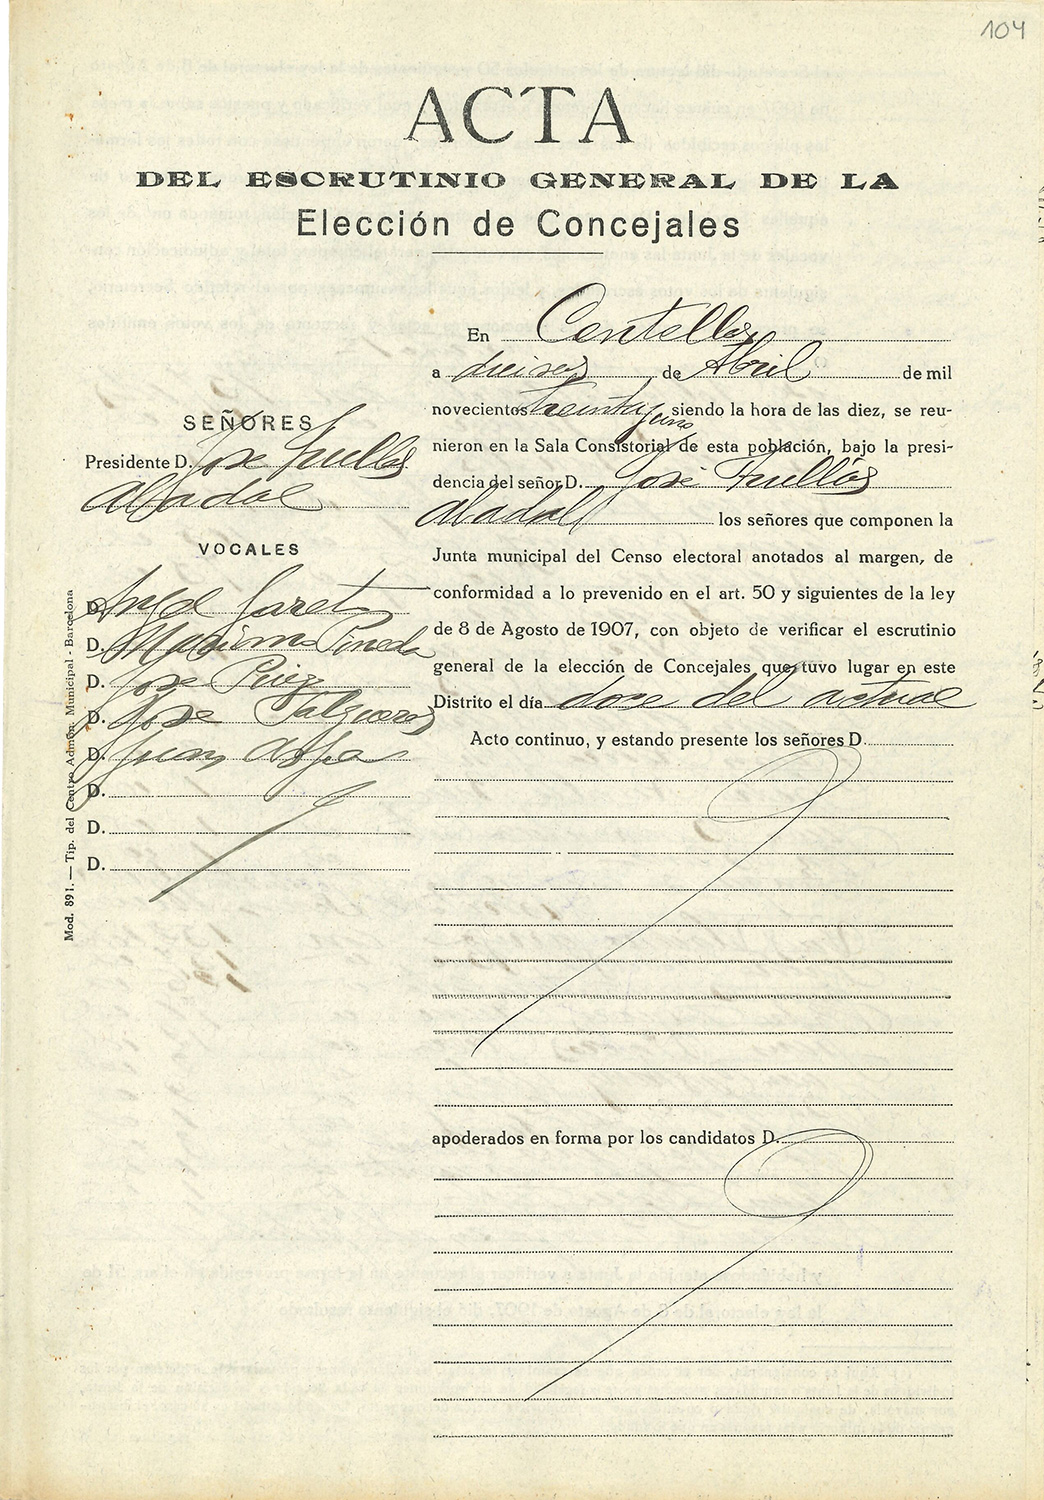 104
ACTA
DEL ESCRUTINIO GENERAL DE LA
Elección de Concejales
SEÑORES
Presidente D. Jose Frullás
Abadal
VOCALES
D. Angel Garet
D. Maxima Pineda
D. Jose Pérez
D. Jose Falgueras
D. Juan
D.
D.
D.
Mod. 891. — Tip. del Centro Admón. Municipal - Barcelona
En Centellas
a dieciseis de Abril de mil
novecientos treinta y uno siendo la hora de las diez, se reu-
nieron en la Sala Consistorial de esta población, bajo la presi-
dencia del señor D. José Frullás
Abadal los señores que componen la
Junta municipal del Censo electoral anotados al margen, de
conformidad a lo prevenido en el art. 50 y siguientes de la ley
de 8 de Agosto de 1907, con objeto de verificar el escrutinio
general de la elección de Concejales que tuvo lugar en este
Distrito el día doce del actual
Acto continuo, y estando presente los señores D.
apoderados en forma por los candidatos D.